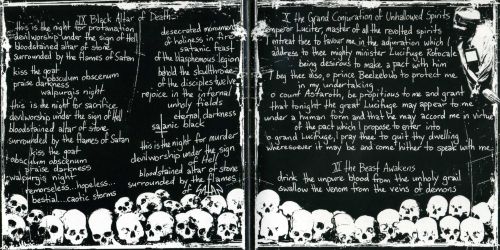 IX Black Altar of Death
this is the night for profanation
devilworship under the sign of Hell
bloodstained altar of stone
surrounded by the flames of Satan
kiss the goat
obsculum obscenum
praise darkness
walpurgis night
this is the night for sacrifice
devilworship under the sign of Hell
bloodstained altar of stone
surrounded by the flames of Satan
kiss the goat
obsculum obscenum
praise darkness
walpurgis night
remorseless...hopeless...
bestial...caotic storms
desecrated monuments
of holiness in fire
satanic feast
of the blasphemous legion
behold the skullthrone
of the disciples twelve
rejoice in the infernal
unholy fields
eternal darkness
satanic black
this is the night for murder
devilworship under the sign
of Hell
bloodstained altar of stone
surrounded by the flames
of Satan
X the Grand Conjuration of Unhallowed Spirits
emperor Lucifer, master of all the revolted spirits
I entreat thee to favour me in the adjuration which I
address to thee mighty minister Lucifuge Rofocale
being desirous to make a pact with him
I beg thee also, o prince Beelzebub to protect me
in my undertaking
o count Astaroth, be propitious to me and grant
that tonight the great Lucifuge may appear to me
under a human form and that he may accord me in virtue
of the pact which I propose to enter into
o grand Lucifuge, I pray thee to quit thy dwelling
wheresoever it may be and come hither to speak with me
the Beast Awakens
drink the unpure blood from the unholy grail
swallow the venom from the veins of demons